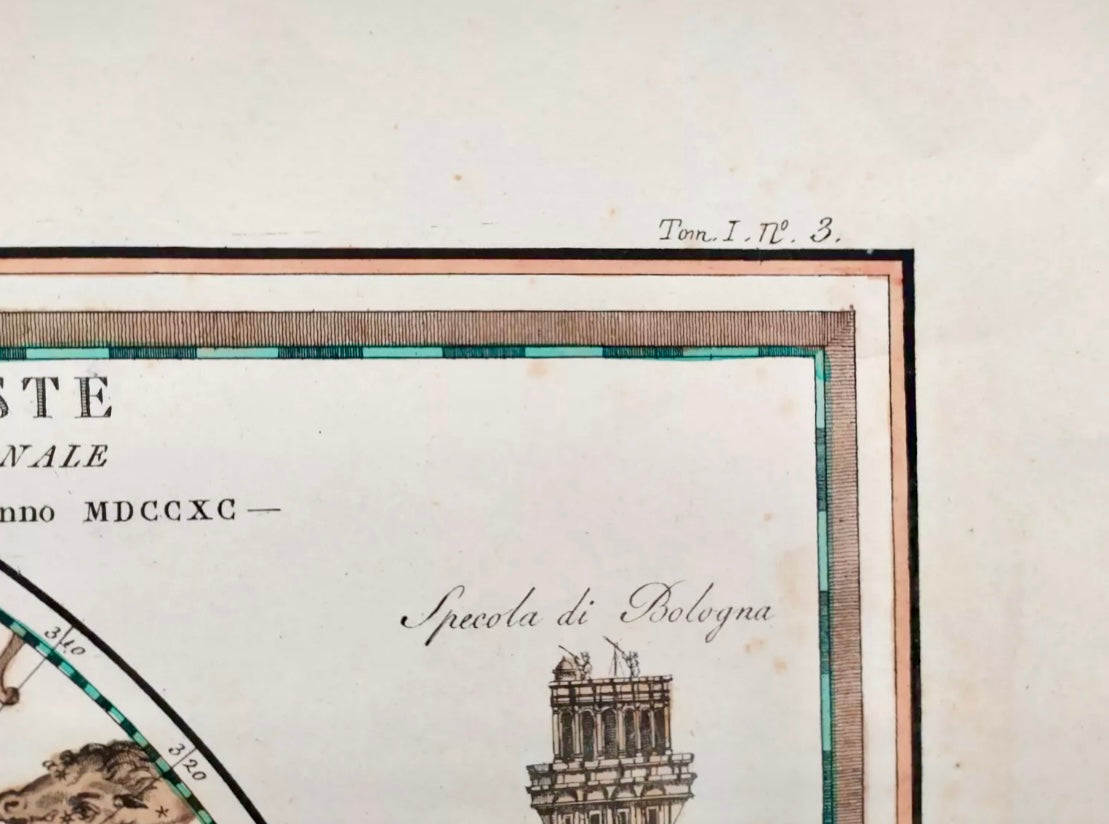 Tom. I. Nº. 3.
STE
NALE
nno MDCCXC —
Specola di Bologna
310
320